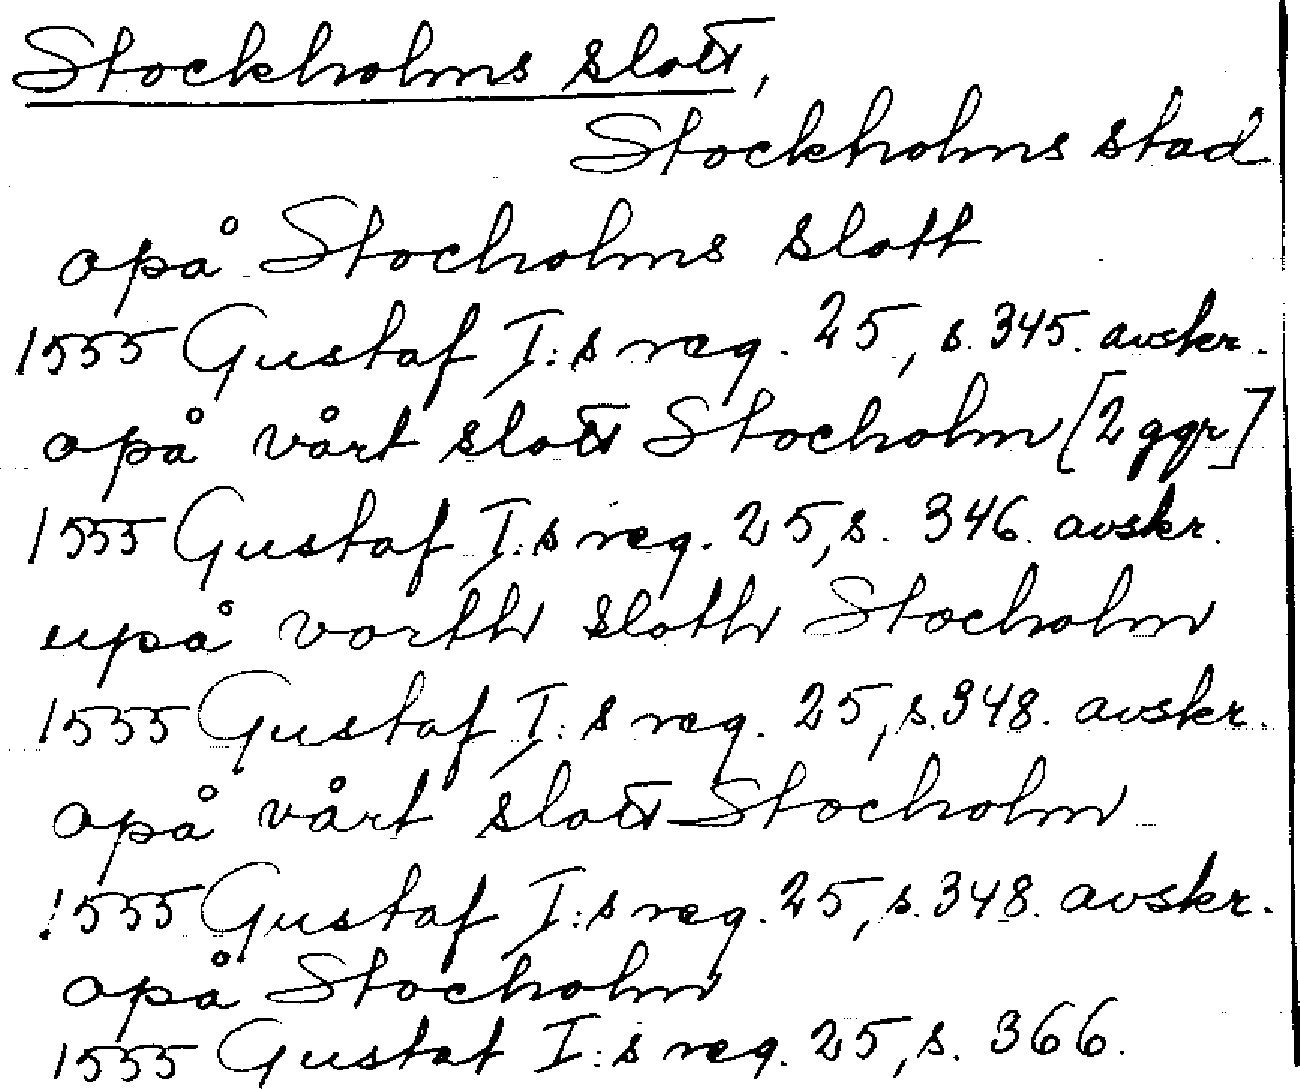 Stockholms slott,
Stockholms stad
opå Stocholms slott
1555 Gustaf I:s reg. 25, s. 345. avskr.
opå vårt slott Stocholm [2 ggr]
1555 Gustaf I:s reg. 25, s. 346. avskr.
upå vorth sloth Stocholm
1555 Gustaf I:s reg. 25, s. 348. avskr.
opå vårt slott Stocholm
1555 Gustaf I:s reg. 25, s. 348. avskr.
opå Stocholm
1555 Gustaf I:s reg. 25, s. 366.